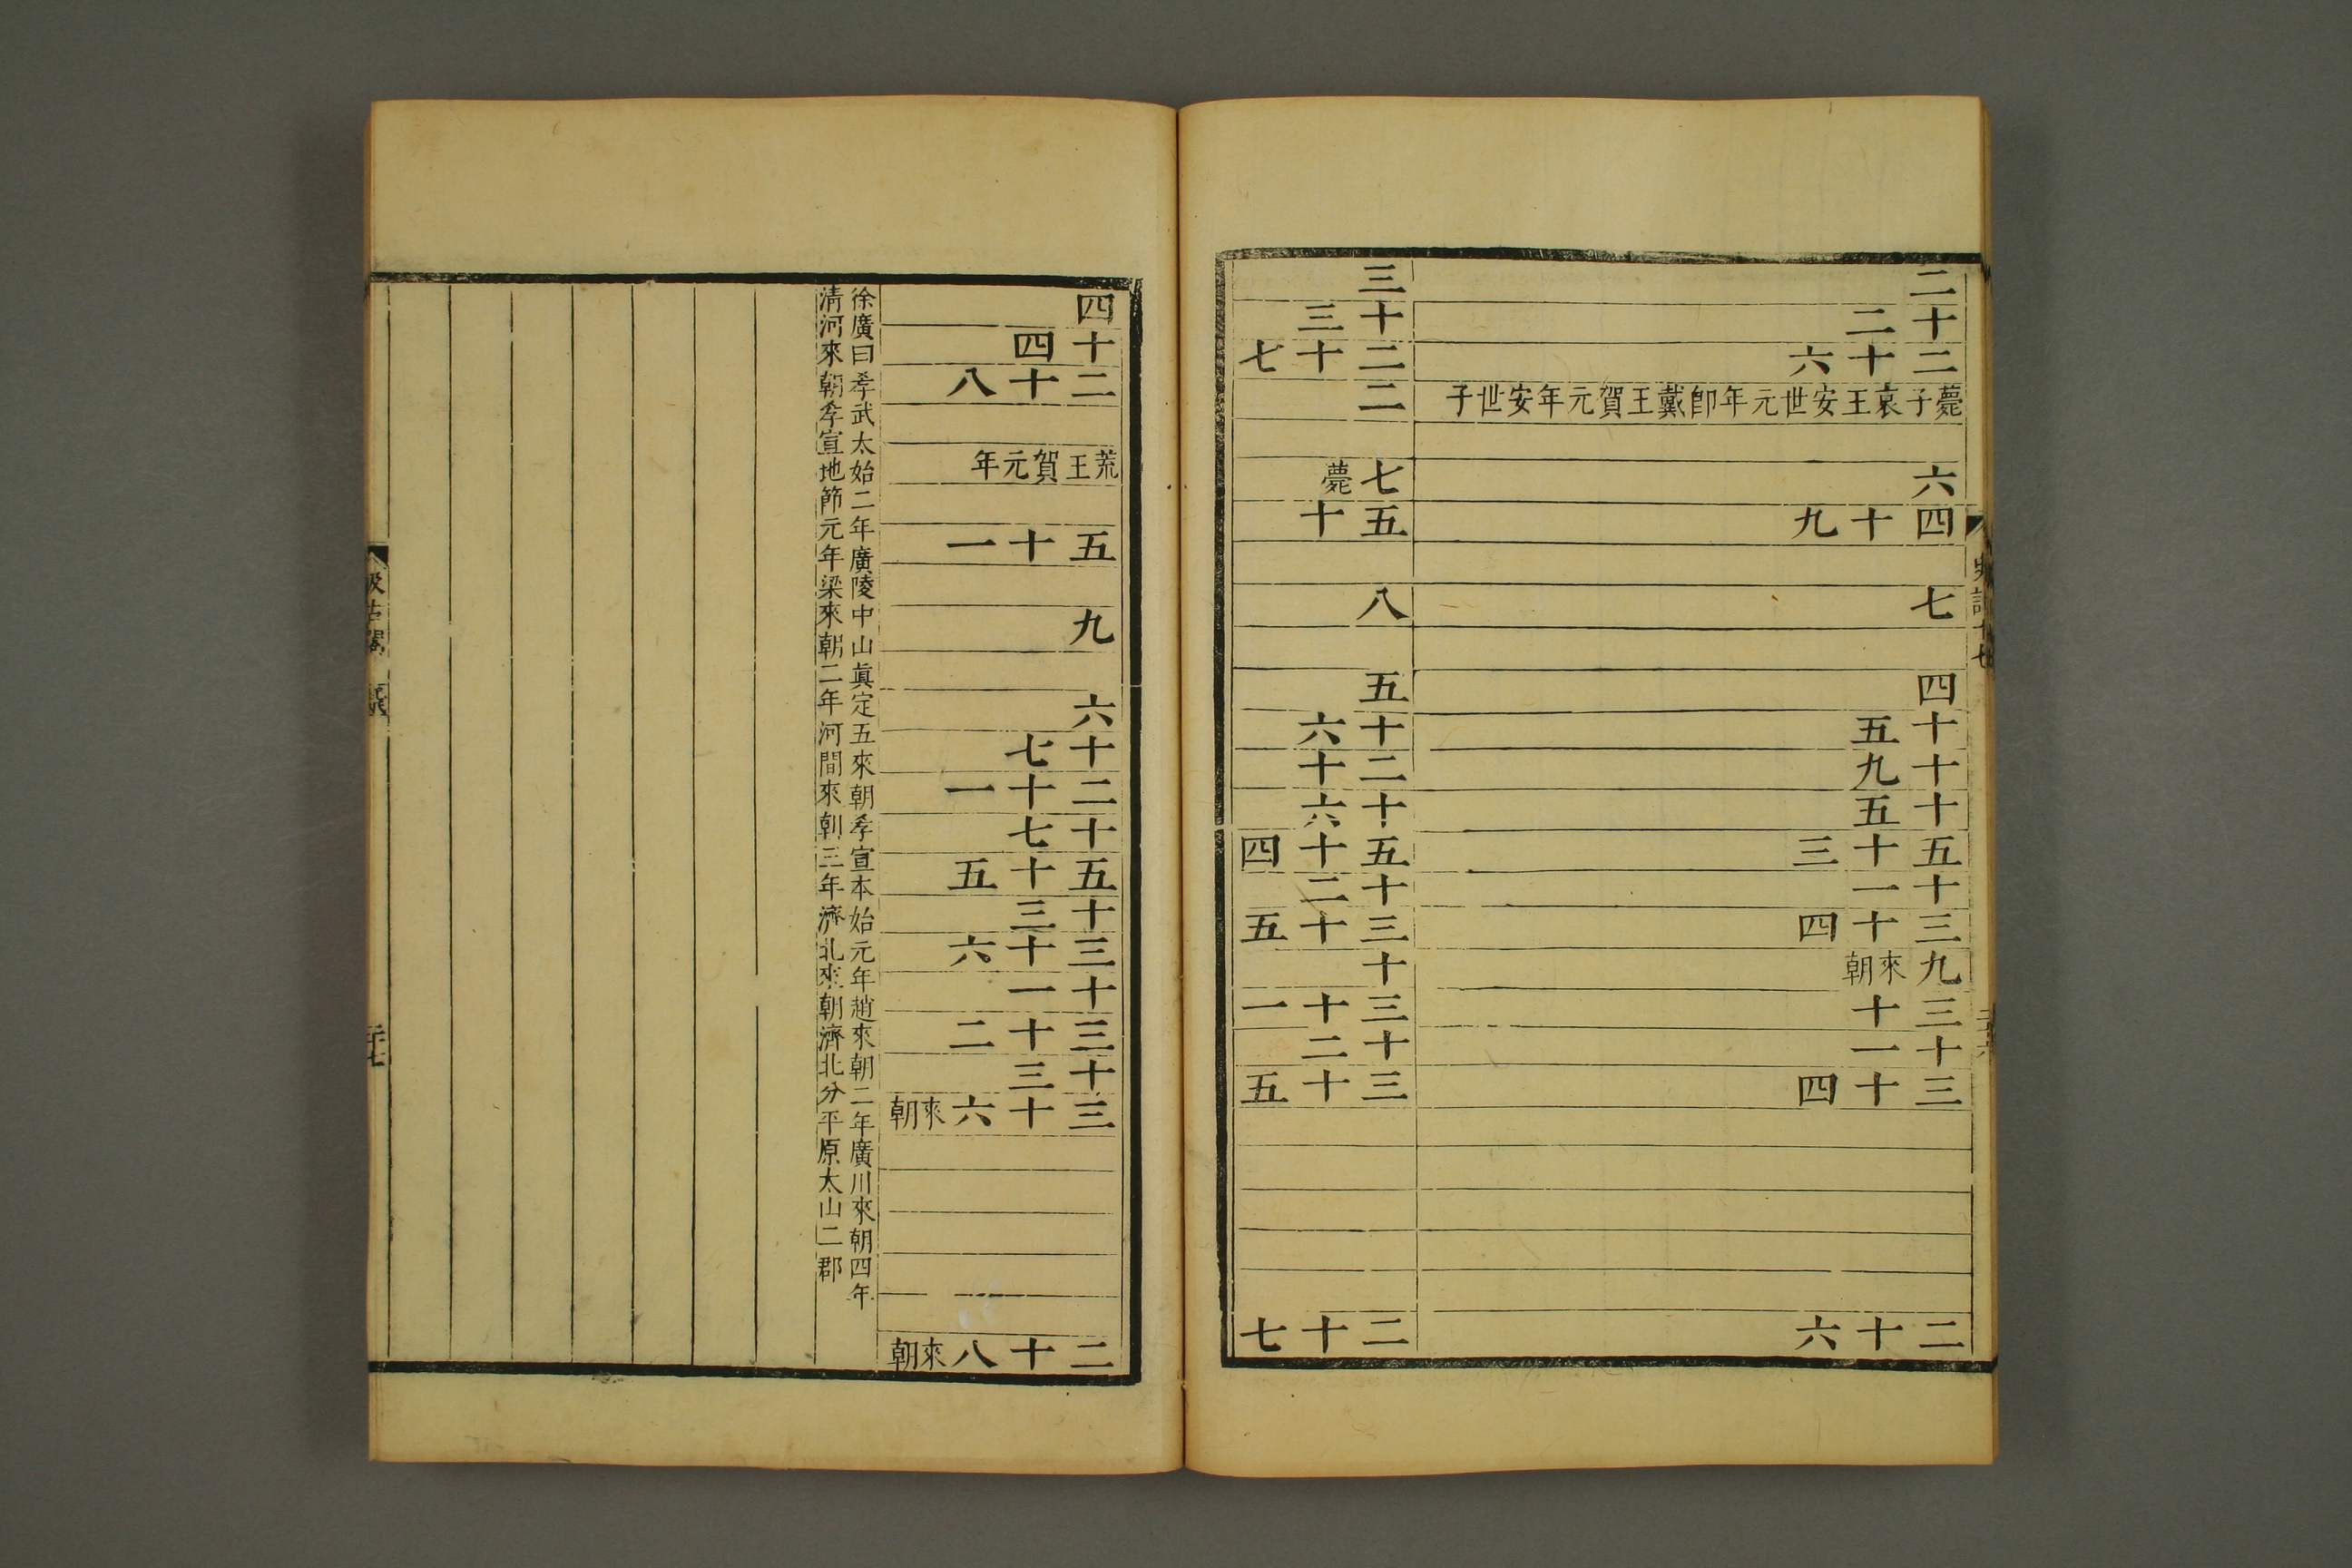 史記十七
二
十二
二十六
薨子哀王安世元年卽戴王賀元年安世子
六
四十九
七
四
十五
十九
十五
五十三
十一
三十四
九來朝
三十
十一
三十四
二十六
三
十三
二十七
二
七薨
五十
八
五
十六
二十
十六
五十四
十二
三十五
十
三十一
十二
三十五
二十七
四
十四
二十八
荒王賀元年
五十一
九
六
十七
二十一
十七
五十五
十三
三十六
十一
三十二
十三
三十六來朝
二十八來朝
徐廣曰孝武太始二年廣陵中山眞定五來朝孝宣本始元年趙來朝二年廣川來朝四年
清河來朝孝宣地節元年梁來朝二年河間來朝三年濟北來朝濟北分平原太山二郡
汲古閣